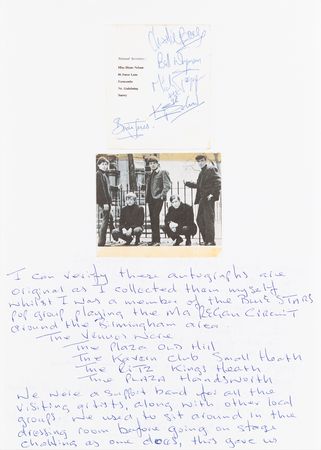 Charlie
Bill Wyman
National Secretary:
Miss Diane Nelson
Mick Jagger
Farncombe
Nr. Godalming
Surrey
Keith
Brian Jones.
I can verify these autographs are
original as I collected them myself
whilst I was a member of the Blue STARS
pop group playing the Ma REGAN CIRCUIT
around the Birmingham area
The Venues were
The PLAZA OLD Hill
The Kavern Club Small Heath
The RITZ Kings Heath
The PLAZA Handsworth
We were a support band for all the
visiting artists, along with other local
groups. We used to sit around in the
dressing room before going on stage
chatting as one does, this gave us